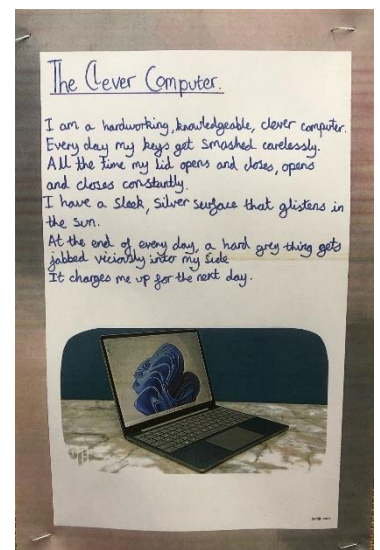 The Clever Computer.
I am a hardworking, knowledgeable, clever computer.
Every day my keys get smashed carelessly.
All the time my lid opens and closes, opens
and closes constantly.
I have a sleek, silver surface that glistens in
the sun.
At the end of every day, a hard grey thing gets
jabbed viciously into my side
It charges me up for the next day.